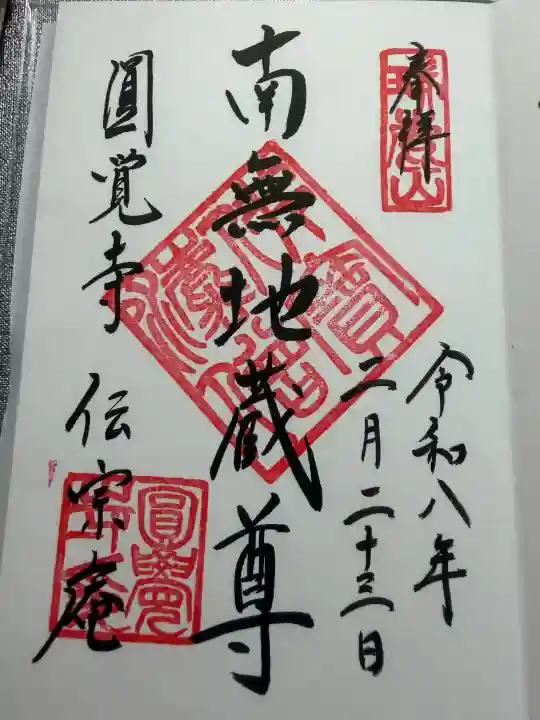 奉拝
令和八年
二月二十三日
南無地蔵尊
圓覚寺 伝宗庵